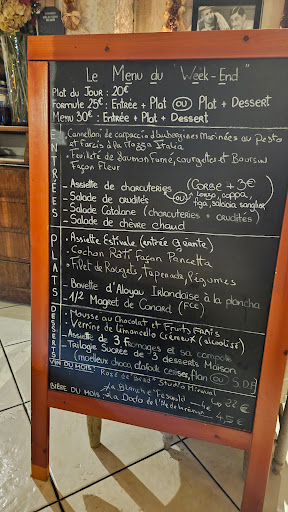 Le Menu du "Week-End"
Plat du Jour : 20€
Formule 25€ : Entrée + Plat OU Plat + Dessert
Menu 30€ : Entrée + Plat + Dessert
ENTRÉES
• Cannelloni de carpaccio d'aubergines Marinées au pesto
et Farcis à la Mozza Italia
• Feuilleté de Saumon Fumé, courgettes et Boursin
Façon Fleur
- Assiette de charcuteries (CORSE + 3€
- Salade de crudités OU lonzo, coppa,
- Salade Catalane (charcuteries + crudités) figa, salacia sanglier)
- Salade de chèvre chaud
PLATS
• Assiette Estivale (entrée géante)
• Cochon Rôti Façon Pancetta
• Filet de Rougets, Tapenade, légumes
Bavette d'Aloyau Irlandaise à la plancha
- 1/2 Magret de Canard (FCE)
DESSERTS
• Mousse au Chocolat et Fruits Frais
• Verrine de Limoncello Crémeux (alcoolisé)
- Assiette de 3 fromages et sa compote
- Trilogie Sucrée de 3 desserts Maison
(moelleux choco, clafoutis cerises, flan OU S.D.F
VIN DU MOIS : Rosé de Studio Miraval 22€
BIÈRE DU MOIS : La Blanche
La 4,5€